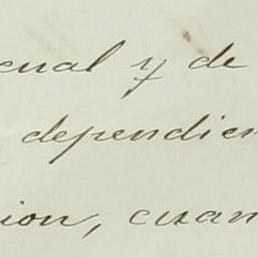 enal y de
dependien
ion, cuan